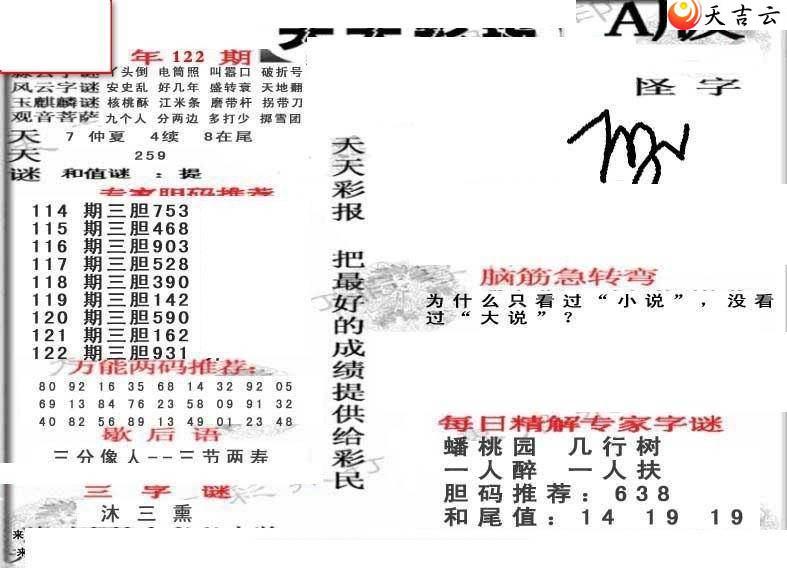 天吉云
年 122 期
丫头倒 电筒照 叫嚣口 破折号
风云字谜 安史乱 好几年 盛转衰 天地翻
玉麒麟谜 核桃酥 江米条 磨带杆 拐带刀
观音菩萨 九个人 分两边 多打少 掷雪团
天 7 仲夏 4续 8在尾
天 259
谜 和值谜 : 提
专家胆码推荐
114 期三胆753
115 期三胆468
116 期三胆903
117 期三胆528
118 期三胆390
119 期三胆142
120 期三胆590
121 期三胆162
122 期三胆931
万能两码推荐:
80 92 16 35 68 14 32 92 05
69 13 84 76 23 58 09 91 32
40 82 56 89 13 49 01 23 48
歇后语
三分像人--三节两寿
三字谜
沐三熏
来
来
天天彩报 把最好的成绩提供给彩民
怪字
脑筋急转弯
为什么只看过“小说”，没看
过“大说”？
每日精解专家字谜
蟠桃园 几行树
一人醉 一人扶
胆码推荐: 638
和尾值: 14 19 19